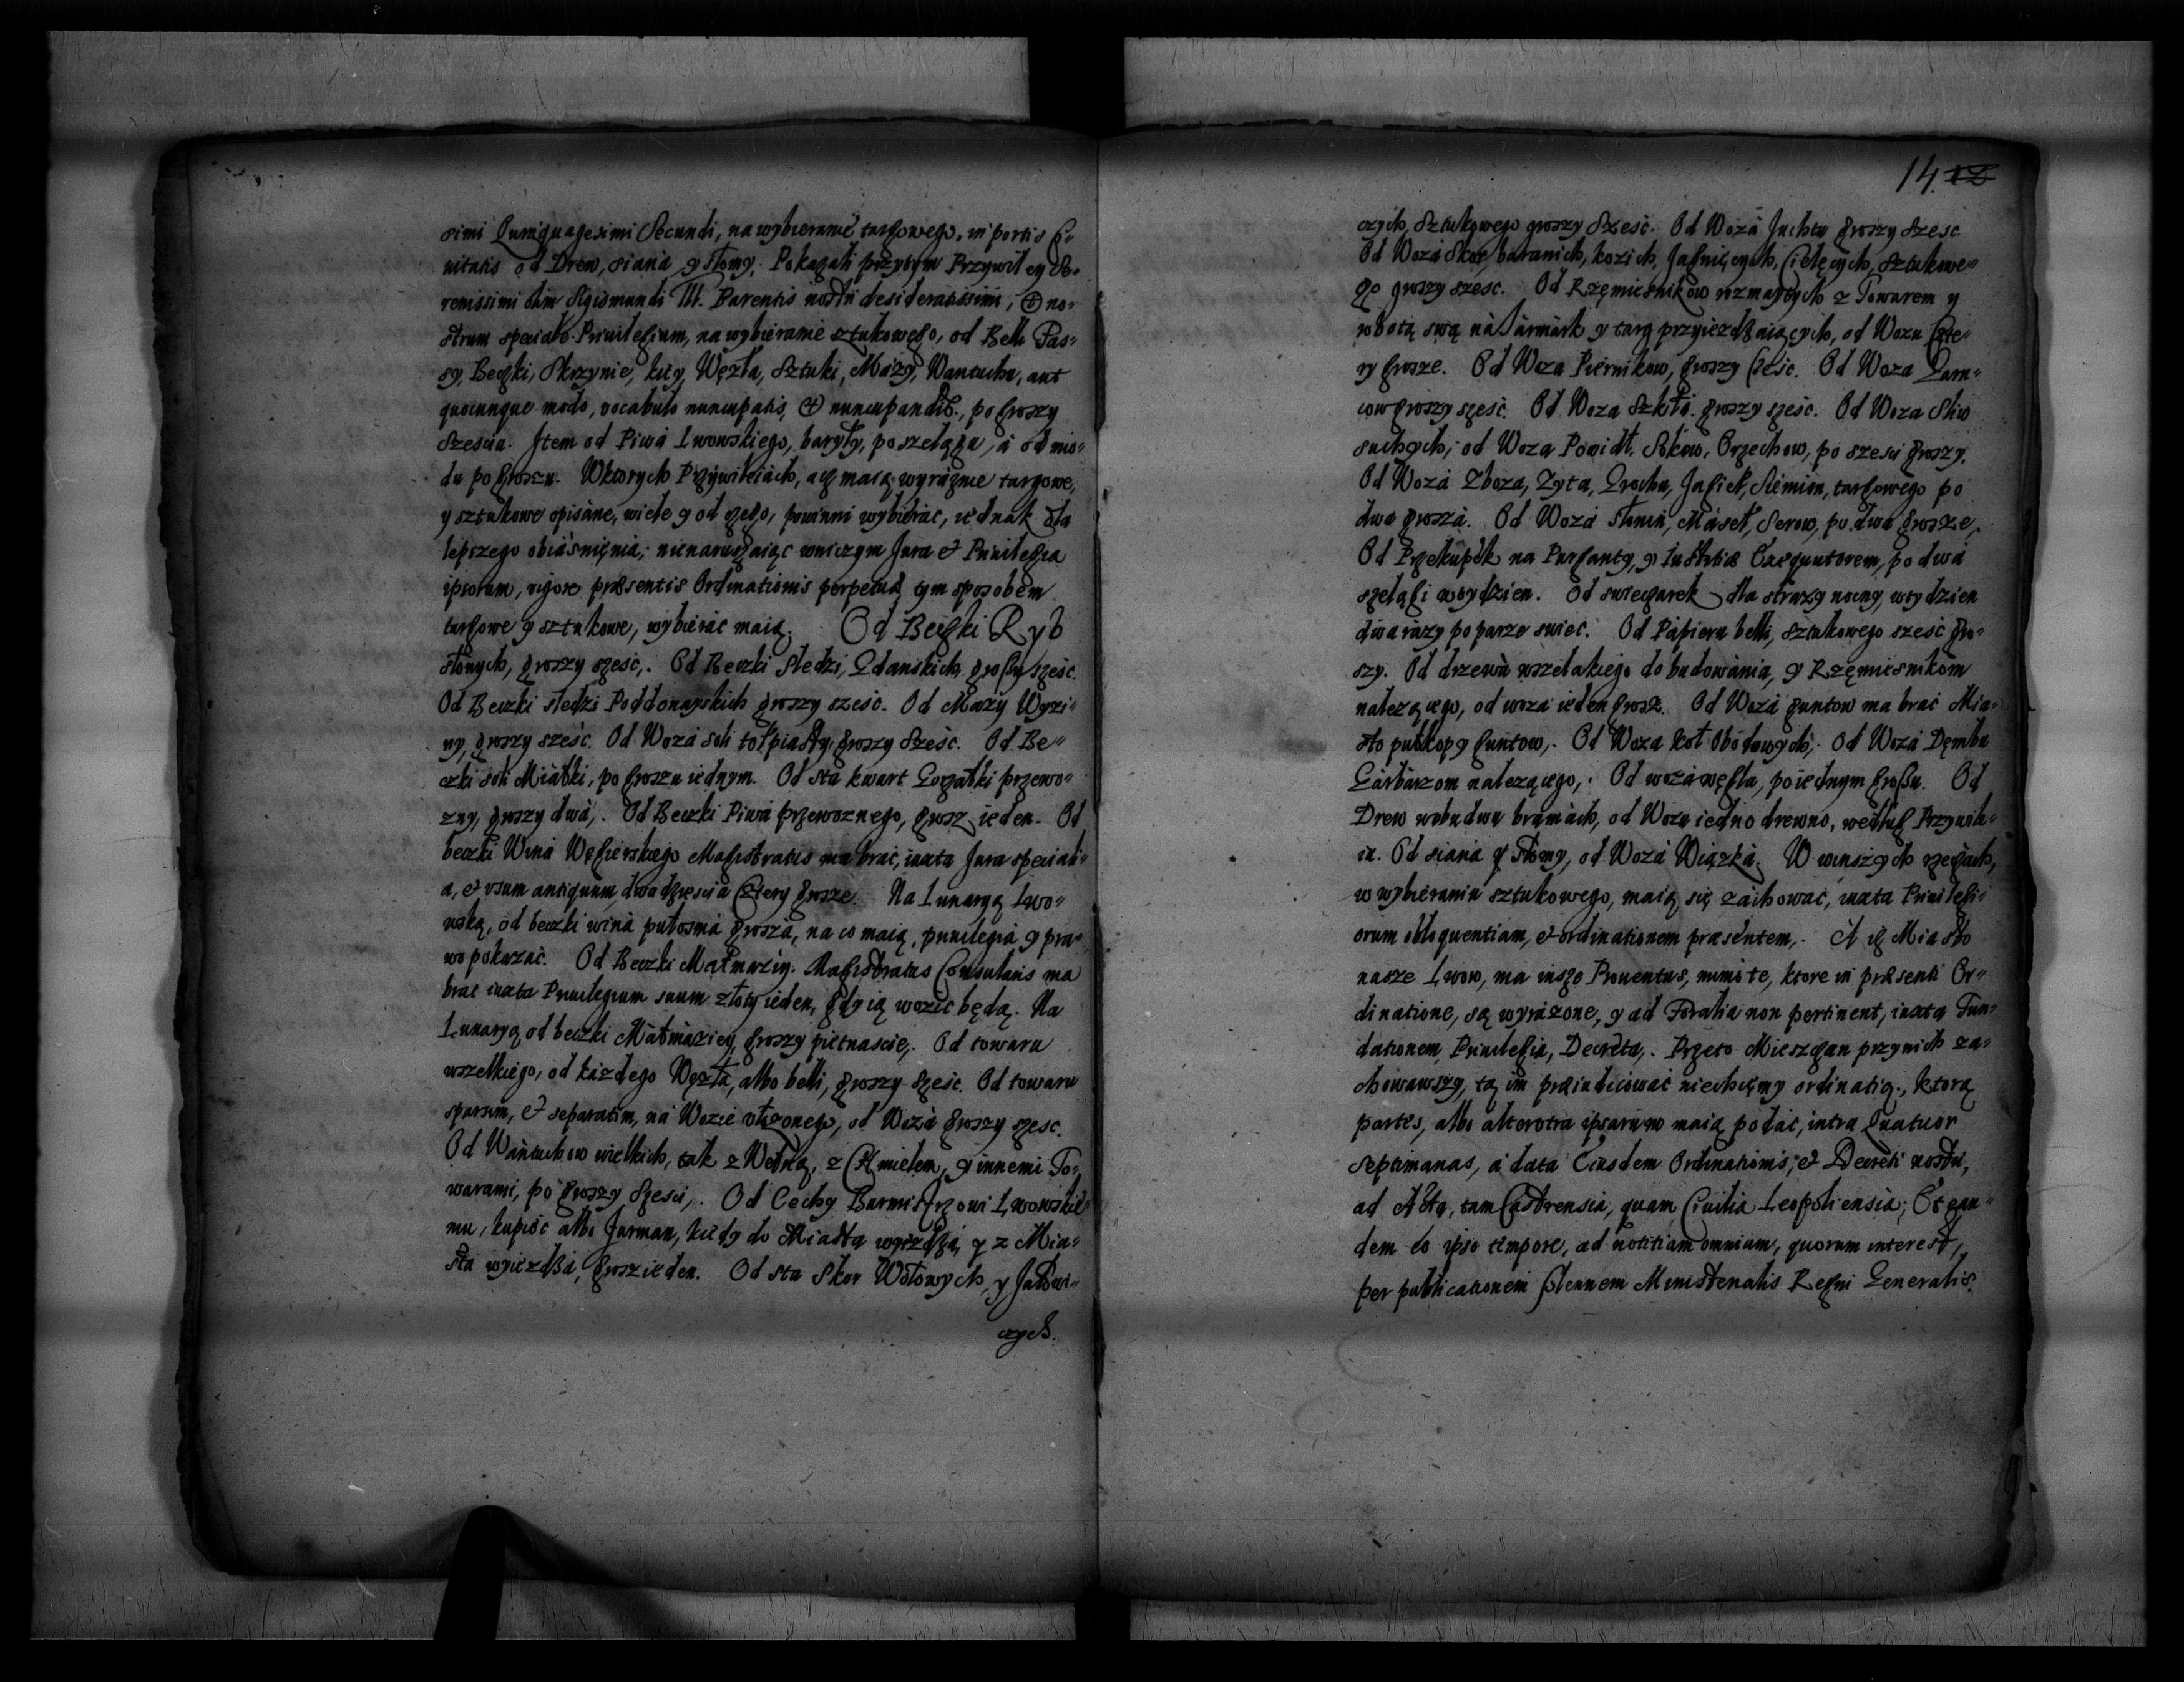 simi Quinquagesimi Secundi, na wybieranie targowego, in portis Ci„
uitatis od Drew, siana y słomy. Pokazali przytym Przywiley Se„
renissimi olim Sigismundi III. Parentis nostri desideratissimi, & no„
strum speciale Priuilegium, na wybieranie sztukowego, od Belli Pas„
sy, Beczki, Skrzynie, Węzła, Sztuki, Maży, Wantucha, aut
quocunque modo, vocabulo nuncupatis, & nuncupandis., po groszy
Sześciu. Item od Piwa Lwowskiego, baryły, po szelągu, á od mio„
du po groszu. Wktorych Przywileiách, acz maią wyráznie targowe,
y sztukowe opisáne, wiele y od czego, powinni wybierác, iednak dla
lepszego obiásnięnia, nienaruszaiąc wniczym Jura & Priuilegia
ipsorum, vigore præsentis Ordinationis perpetuæ, tym sposobem
targowe y sztukowe, wybieráć maią. Od Beczki Ryb
słonych, groszy sześć,. Od Beczki Sledzi, Gdanskich groszy sześć.
Od Beczki sledzi Poddonayskich groszy sześć. Od Mázy Wyzi„
ny, groszy sześć. Od Wozá soli tołpiasty, groszy Sześć. Od Be„
czki soli Miáłki, po groszu iednym. Od sta kwart Gorzałki przewo„
zny, groszy dwá,. Od Beczki Piwá przewoznego, grosz ieden. Od
beczki Winá Węgierskiego Magistratus ma brać, iuxta Jura speciali„
a, & vsum antiquum, dwadzieścia Cztery grosze. Na Lunaryą Lwo„
wską, od beczki winá pułosmá groszá, na co maią, priuilegiá y pra„
wo pokazać. Od Beczki Małmaziy. Magistratus Consularis ma
brać iuxta Priuilegium suum złoty ieden, gdy ią wozić będą. Na
Lunaryą od beczki Máłmáziey groszy piętnaście,. Od towaru
wszelkiego, od każdego Węzła, albo belli, groszy sześć. Od towaru
sparsim, & separatim, ná Wozie włozonego, od Wozá groszy sześć.
Od Wántuchow wielkich, tak z Wełną, z Chmielem, y innemi To„
warami, po groszy Sześci,. Od Cechy Burmistrzowi Lwowskie„
mu, kupiec albo furman, kiedy do Miasta wieżdżá, y z Mia„
sta wyieżdżá, grosz ieden. Od sta Skor Wołowych, y Jałowi„
czych.
14. 12
czych, Sztukowego groszy Sześć. Od Wozá Juchtu groszy Sześć
Od Wozá Skor, báranich, kozich, Jagnięcych, Cielęcych, Sztukowe„
go groszy sześć. Od Rzęmiesnikow rozmaytych z Towarem y
robotą swą ná Jármárk y targ przyieżdżaiących, od Wozu Czte„
ry grosze. Od Woza Piernikow, groszy Sześć. Od Woza Garn„
cow groszy sześć. Od Woza Szkłá groszy sześć. Od Woza Sliw
suchych, od Woza Powidł, Sokow, Orzechow, po sześci groszy.
Od Wozá Zboza, Zyta, Grochu, Jagieł, Siemion, targowego po
dwa groszá. Od Wozá słonin, Máseł, Serow, po dwa grosze.
Od Przekupek na Purganty, y Iustitiæ Exequutorem, po dwá
szelągi wtydzien. Od swieczarek dla strazy nocny, wtydzien
dwa rázy po parze swiec. Od Pápieru belli, sztukowego sześć gro„
szy. Od drzewá wszelakiego do budowánia, y Rzęmiesnikom
należącego, od woza ieden grosz. Od Wozá guntow ma brać Mia„
sto pułkopy guntow,. Od Woza koł Obódowych,. Od Wozá Dęmbu
Gárbárzom należącego,. Od wozá węgla, po iednym groszu. Od
Drew wobudwu brámách, od Wozu iedno drewno, według Przywile„
iu. Od siana y słomy, od Wozá Wiązká. W inszych rzeczách,
w wybieraniu sztukowego, maią się záchowáć, iuxta Priuilegi„
orum obloquentiam, & ordinationem præsentem,. A iż Miasto
nasze Lwow, ma inszo Prouentus, mimo te, ktore in præsenti Or„
dinatione, są wyrázone, y ad Foralia non pertinent, iuxta Fun„
dationem, Priuilegia, Decreta,. Przeto Mieszczan przy nich za„
chowawszy, tą im præiudicowáć niechcęmy ordinatią., ktorą
partes, albo alterotra ipsarum maią podáć, intra Quatuor
septimanas, á data Eiusdem Ordinationis, & Decreti nostri,
ad Acta, tam Castrensia, quam Ciuilia Leopoliensia; & ean„
dem eo ipso tempore, ad notitiam omnium, quorum interest,
per publicationem solennem Ministerialis Regni Generalis.